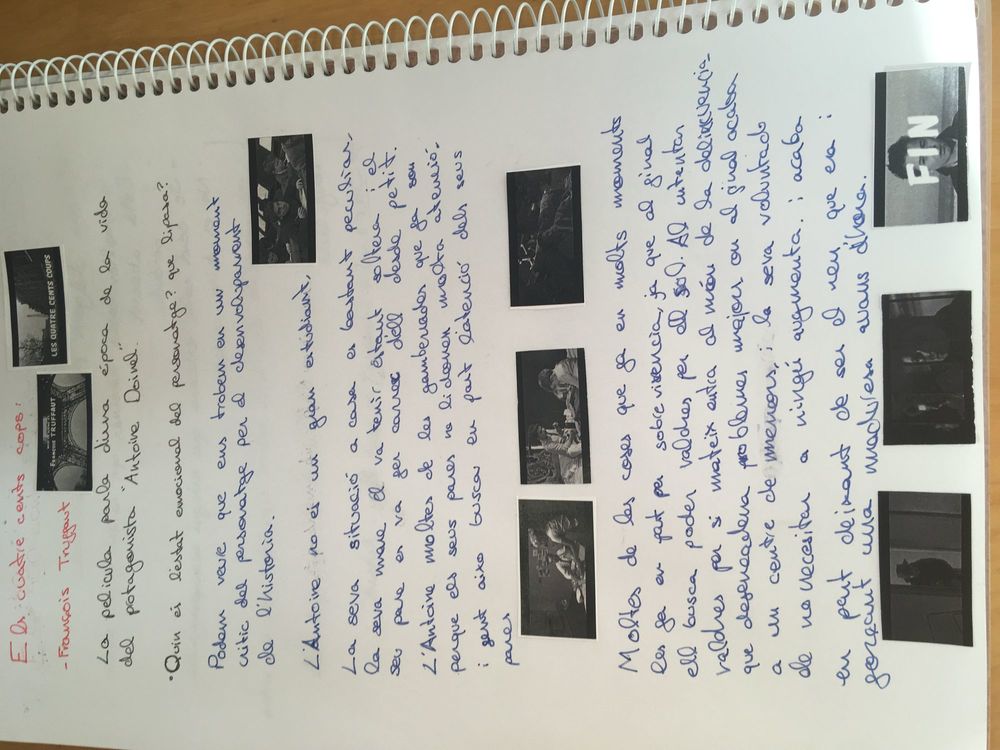 Els quatre cents cops:
- François Truffaut
FRANÇOIS TRUFFAUT
LES QUATRE CENTS COUPS
La pelicula parla d'una época de la vida
del potagonista "Antoine Doinel".
• Quin es l'estat emocional del personatge? que li pasa?
Podem vore que ens trobem en un moment
critic del personatge per al desenvolupament
de l'historia.
L'Antoine no es un gran estudiant,
La seva situació a casa es bastant peculiar,
la seva mare el va tenir éstant soltera i el
seu pare es va fer carrec d'ell desde petit.
L'Antoine moltes de les gamberrades que fa son
perque els seus pares no li donen molta atenció,
i fent aixo busca en part l'atenció dels seus
pares
Moltes de les coses que fa en molts moments
les fa en part per sobrevivencia, ja que al final
ell busca poder valdres per ell sol. Al intentar
valdres per si mateix entra al món de la delincuencia
que desencadena problemes majors on al final acaba
a un centre de menors, la seva voluntad
de no necesitar a ningú augmenta i acaba
en part deixant de ser el nen que era i
forçant una maduresa avans d'hora.
FIN